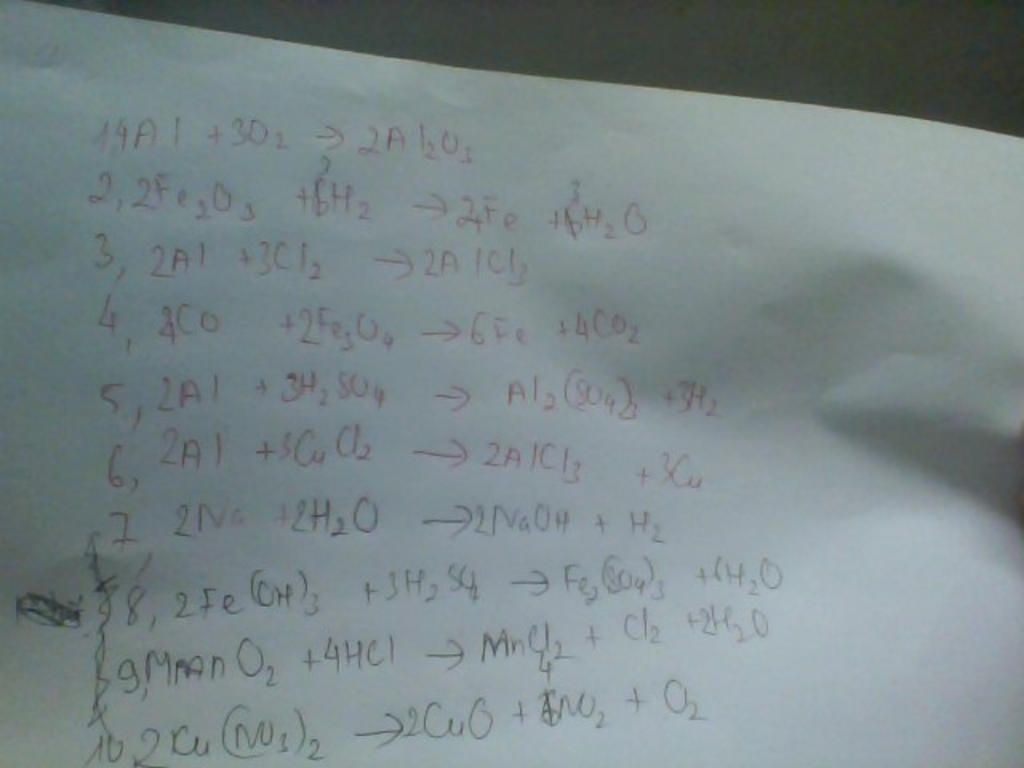 1 4Al + 3O₂ → 2Al₂O₃
2, 2Fe₂O₃ + 6H₂ → 4Fe + 6H₂O
3, 2Al + 3Cl₂ → 2AlCl₃
4, 8CO + 2Fe₃O₄ → 6Fe + 4CO₂
5, 2Al + 3H₂SO₄ → Al₂(SO₄)₃ + 3H₂
6, 2Al + 3CuCl₂ → 2AlCl₃ + 3Cu
7, 2Na + 2H₂O → 2NaOH + H₂
8, 2Fe(OH)₃ + 3H₂SO₄ → Fe₂(SO₄)₃ + 6H₂O
9, MnO₂ + 4HCl → MnCl₂ + Cl₂ + 2H₂O
10, 2Cu(NO₃)₂ → 2CuO + 4NO₂ + O₂